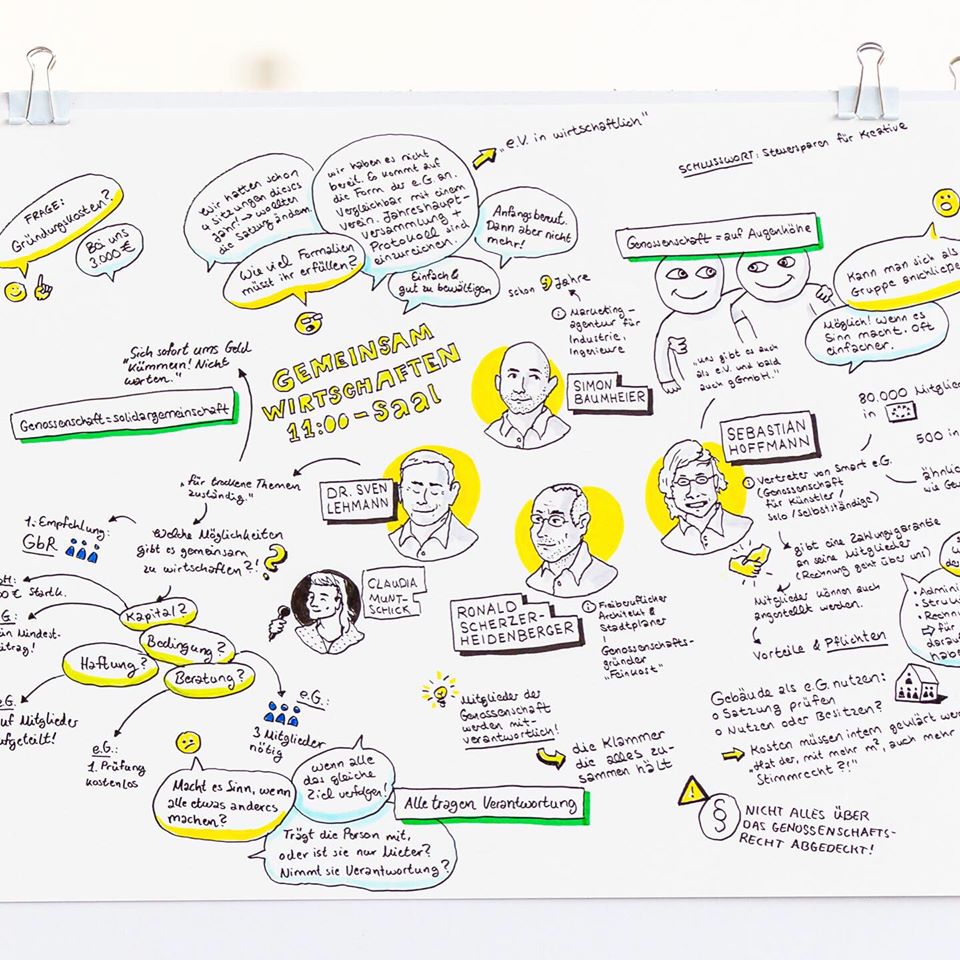 FRAGE:
Gründungskosten?
Bei uns
3.000 €
Wir hatten schon
4 Sitzungen dieses
Jahr! → wollten
die Satzung ändern
Wir haben es nicht
bereit. Es kommt auf
die Form der e.G. an.
Vergleichbar mit einem
Verein. Jahreshaupt-
versammlung +
Protokoll sind
einzureichen.
"e.V. in wirtschaftlich"
Wie viel Formalien
müsst ihr erfüllen?
Einfach &
gut zu bewältigen
Anfangs berut.
Dann aber nicht
mehr!
SCHLUSSWORT: Steuersparen für Kreative
Genossenschaft = auf Augenhöhe
Kann man sich als
Gruppe anschließe
Möglich! Wenn es
Sinn macht. Oft
einfacher.
"uns gibt es auch
als e.V. und bald
auch gGmbH."
GEMEINSAM
WIRTSCHAFTEN
11:00 - SAAL
Sich sofort ums Geld
"kümmern! Nicht
warten."
Genossenschaft = solidargemeinschaft
schon 9 Jahre
Marketing-
agentur für
Industrie,
Ingenieure
SIMON
BAUMHEIER
SEBASTIAN
HOFFMANN
80.000 Mitglie
in
500 in
ähnlic
wie Ge
Vertreter von Smart e.G.
(Genossenschaft
für Künstler/
Solo/Selbstständige)
gibt eine Zahlungsgarantie
an seine Mitglieder
(Rechnung geht über uns)
Mitglieder können auch
angestellt werden.
Vorteile & Pflichten
• Admini
• Struk
• Rechn
⇒ für
darau
habe
"für trockene Themen
zuständig."
DR. SVEN
LEHMANN
1. Empfehlung:
GbR
Welche Möglichkeiten
gibt es gemeinsam
zu wirtschaften?!
CLAUDIA
MUNT-
SCHICK
RONALD
SCHERZER-
HEIDENBERGER
Freiberuflicher
Architekt &
Stadtplaner
Genossenschafts-
gründer
"Feinkost"
Kapital?
Bedingung?
Haftung?
Beratung?
bH:
00 € Startk.
G:
in Mindest-
itrag!
e.G.
uf Mitglieder
ufgeteilt!
e.G.:
1. Prüfung
kostenlos
e.G.:
3 Mitglieder
nötig
Mitglieder der
Genossenschaft
werden mit-
verantwortlich!
die Klammer
die alles zu-
sammen hält
Gebäude als e.G. nutzen:
o Satzung prüfen
o Nutzen oder Besitzen?
⇒ Kosten müssen intern geklärt we
"Hat der, mit mehr m², auch mehr
Stimmrecht?!"
§ NICHT ALLES ÜBER
DAS GENOSSENSCHAFTS-
RECHT ABGEDECKT!
Macht es Sinn, wenn
alle etwas anderes
machen?
Wenn alle
das gleiche
Ziel verfolgen!
Alle tragen Verantwortung
Trägt die Person mit,
oder ist sie nur Mieter?
Nimmt sie Verantwortung?